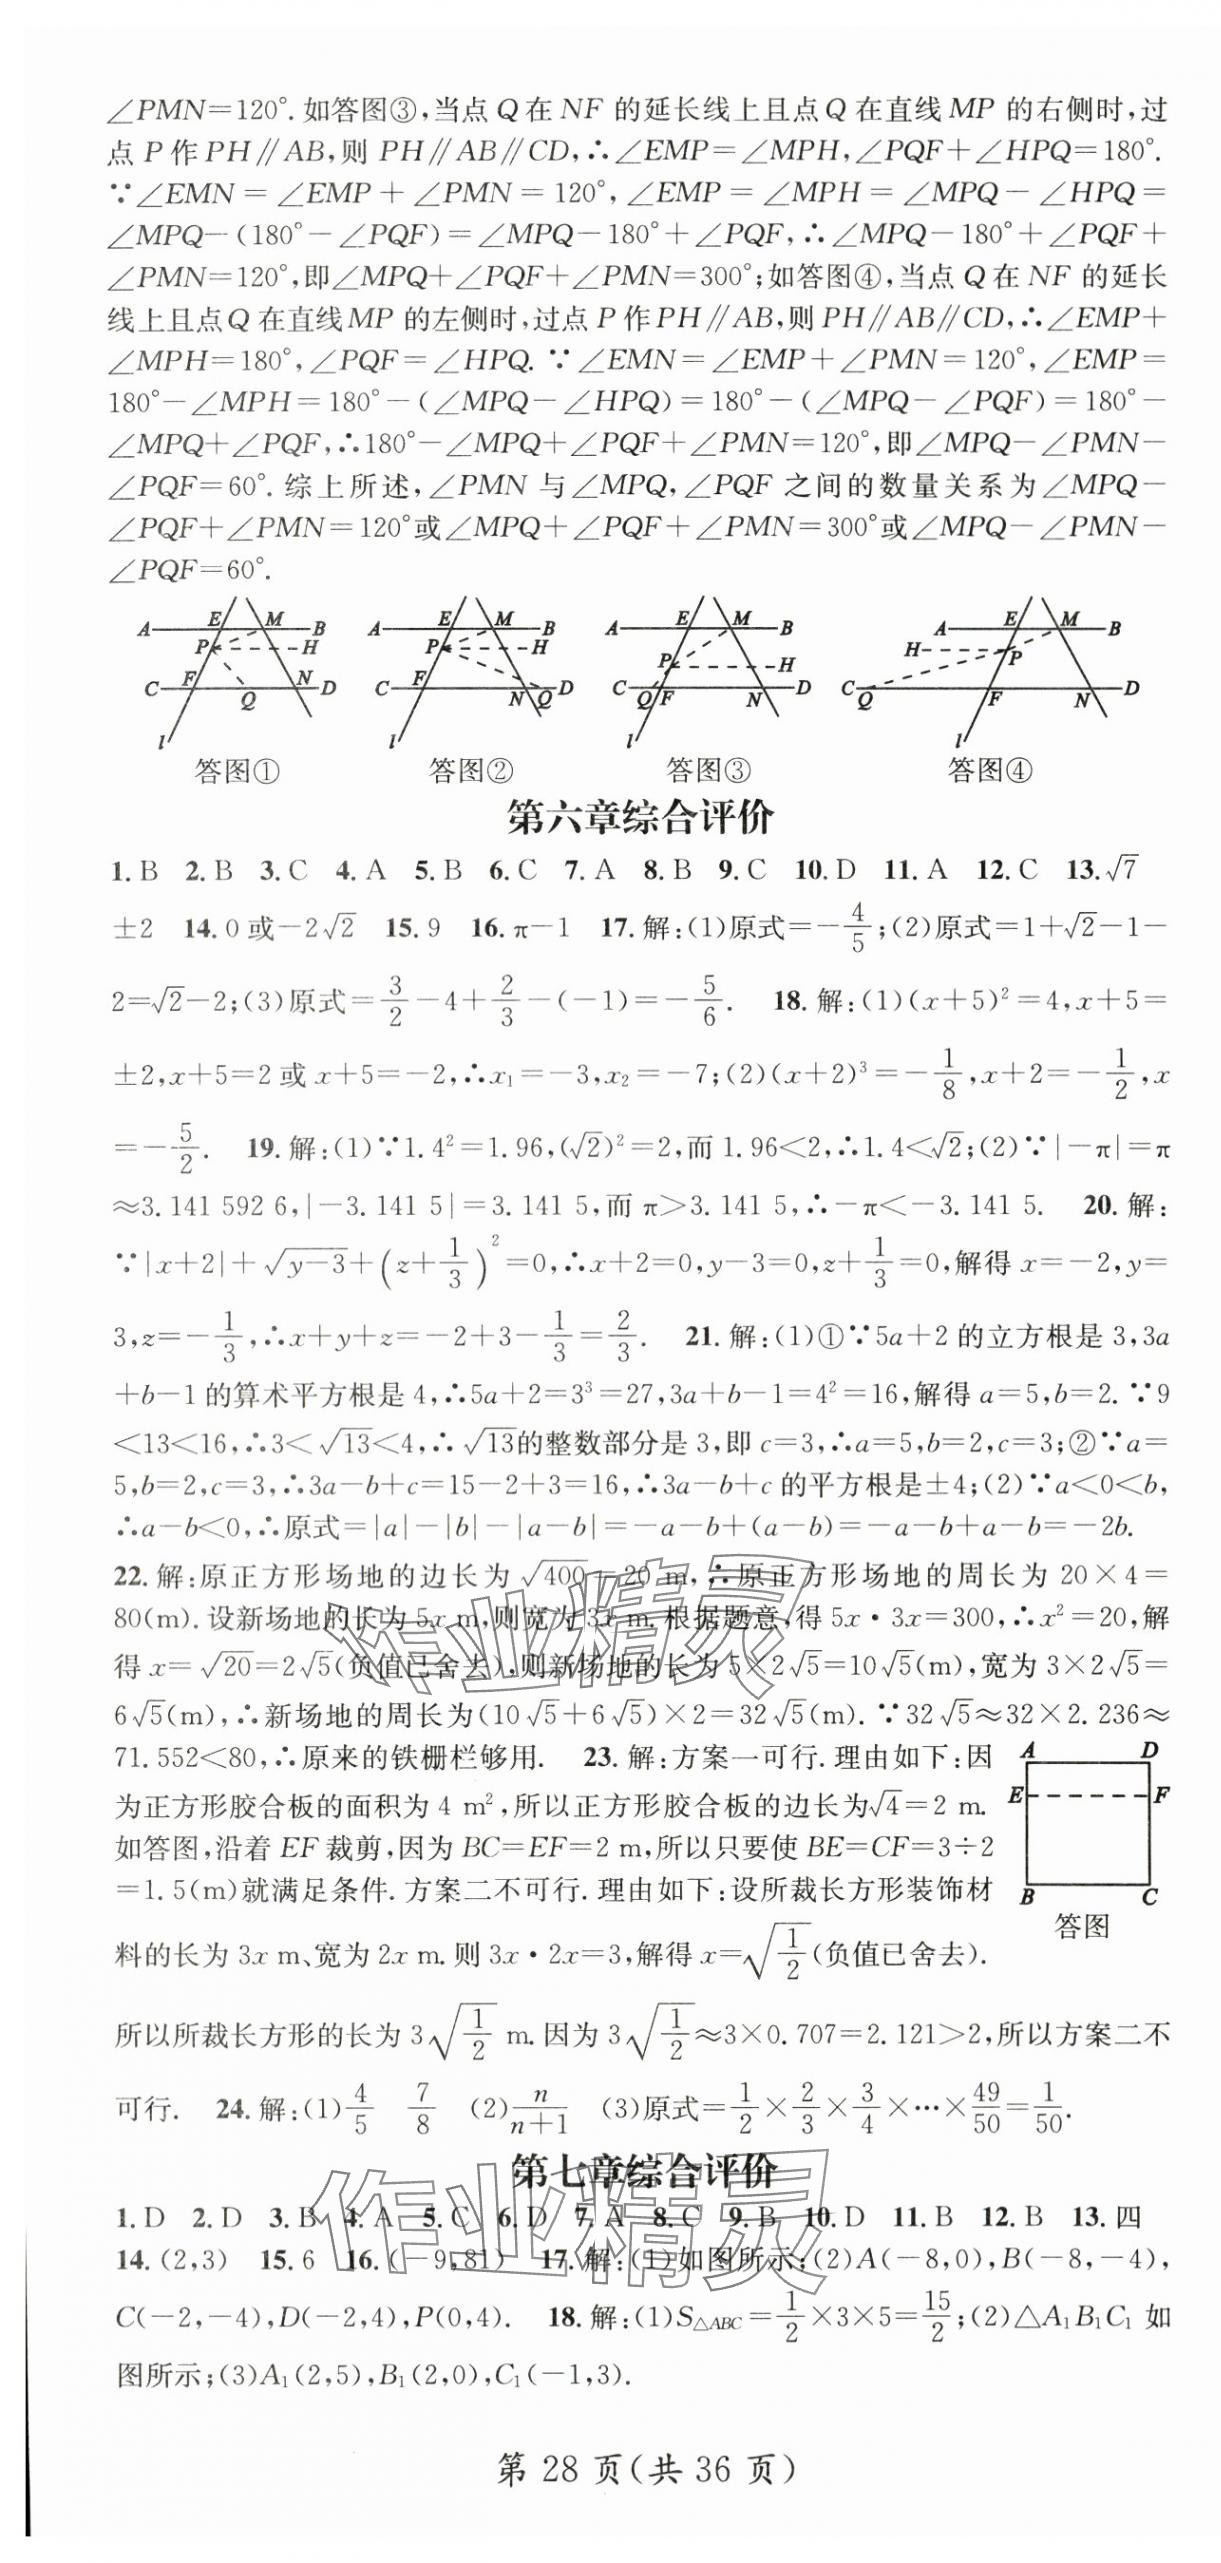 ∠PMN=120°.如答图③,当点Q在NF的延长线上且点Q在直线MP的右侧时,过
点P作PH∥AB,则PH∥AB∥CD,∴∠EMP=∠MPH,∠PQF+∠HPQ=180°.
∵∠EMN=∠EMP+∠PMN=120°,∠EMP=∠MPH=∠MPQ-∠HPQ=
∠MPQ-(180°-∠PQF)=∠MPQ-180°+∠PQF,∴∠MPQ-180°+∠PQF+
∠PMN=120°,即∠MPQ+∠PQF+∠PMN=300°;如答图④,当点Q在NF的延长
线上且点Q在直线MP的左侧时,过点P作PH∥AB,则PH∥AB∥CD,∴∠EMP+
∠MPH=180°,∠PQF=∠HPQ.∵∠EMN=∠EMP+∠PMN=120°,∠EMP=
180°-∠MPH=180°-(∠MPQ-∠HPQ)=180°-(∠MPQ-∠PQF)=180°-
∠MPQ+∠PQF,∴180°-∠MPQ+∠PQF+∠PMN=120°,即∠MPQ-∠PMN-
∠PQF=60°.综上所述,∠PMN与∠MPQ,∠PQF之间的数量关系为∠MPQ-
∠PQF+∠PMN=120°或∠MPQ+∠PQF+∠PMN=300°或∠MPQ-∠PMN-
∠PQF=60°.
A E M B P H C F N D Q l
A E M B P H C F N Q D l
A E M B P H C Q F N D l
A E M B H P C Q F N D l
答图① 答图② 答图③ 答图④
第六章综合评价
1.B 2.B 3.C 4.A 5.B 6.C 7.A 8.B 9.C 10.D 11.A 12.C 13.√7
±2 14.0或-2√2 15.9 16.π-1 17.解:(1)原式=-4/5;(2)原式=1+√2-1-
2=√2-2;(3)原式=3/2-4+2/3-(-1)=-5/6. 18.解:(1)(x+5)²=4,x+5=
±2,x+5=2或x+5=-2,∴x₁=-3,x₂=-7;(2)(x+2)³=-1/8,x+2=-1/2,x
=-5/2. 19.解:(1)∵1.4²=1.96,(√2)²=2,而1.96<2,∴1.4<√2;(2)∵|-π|=π
≈3.141 592 6,|-3.141 5|=3.141 5,而π>3.141 5,∴-π<-3.141 5. 20.解:
∵|x+2|+√(y-3)+(z+1/3)²=0,∴x+2=0,y-3=0,z+1/3=0,解得x=-2,y=
3,z=-1/3,∴x+y+z=-2+3-1/3=2/3. 21.解:(1)①∵5a+2的立方根是3,3a
+b-1的算术平方根是4,∴5a+2=3³=27,3a+b-1=4²=16,解得a=5,b=2.∵9
<13<16,∴3<√13<4,∴√13的整数部分是3,即c=3,∴a=5,b=2,c=3;②∵a=
5,b=2,c=3,∴3a-b+c=15-2+3=16,∴3a-b+c的平方根是±4;(2)∵a<0<b,
∴a-b<0,∴原式=|a|-|b|-|a-b|=-a-b+(a-b)=-a-b+a-b=-2b.
22.解:原正方形场地的边长为√400=20 m,∴原正方形场地的周长为20×4=
80(m).设新场地的长为5x m,则宽为3x m.根据题意,得5x·3x=300,∴x²=20,解
得x=√20=2√5(负值已舍去),则新场地的长为5×2√5=10√5(m),宽为3×2√5=
6√5(m),∴新场地的周长为(10√5+6√5)×2=32√5(m).∵32√5≈32×2.236≈
71.552<80,∴原来的铁栅栏够用. 23.解:方案一可行.理由如下:因
为正方形胶合板的面积为4 m²,所以正方形胶合板的边长为√4=2 m.
如答图,沿着EF裁剪,因为BC=EF=2 m,所以只要使BE=CF=3÷2
=1.5(m)就满足条件.方案二不可行.理由如下:设所裁长方形装饰材
料的长为3x m、宽为2x m.则3x·2x=3,解得x=√(1/2)(负值已舍去).
A D E F B C
答图
所以所裁长方形的长为3√(1/2) m.因为3√(1/2)≈3×0.707=2.121>2,所以方案二不
可行. 24.解:(1)4/5 7/8 (2)n/(n+1) (3)原式=1/2×2/3×3/4×…×49/50=1/50.
第七章综合评价
1.D 2.D 3.B 4.A 5.C 6.D 7.A 8.C 9.B 10.D 11.B 12.B 13.四
14.(2,3) 15.6 16.(-9,81) 17.解:(1)如图所示;(2)A(-8,0),B(-8,-4),
C(-2,-4),D(-2,4),P(0,4). 18.解:(1)S△ABC=1/2×3×5=15/2;(2)△A₁B₁C₁如
图所示;(3)A₁(2,5),B₁(2,0),C₁(-1,3).
第 28 页(共 36 页)
作业精灵
作业精灵